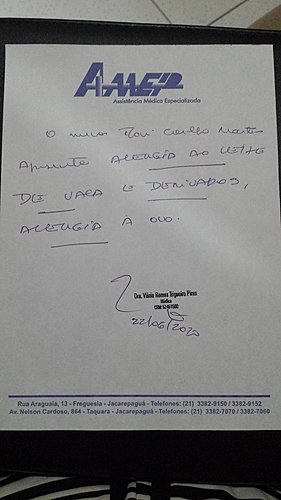 AMEP
Assistência Médica Especializada
O menor Davi Coelho Martins
Apresenta ALERGIA AO LEITE
DE VACA E DERIVADOS,
ALERGIA A OVO.
Dra. Vânia Ramos Trigueiro Pires
Médica
22/06/2020
Rua Araguaia, 13 - Freguesia - Jacarepaguá - Telefones: (21) 3382-9150 / 3382-9152
Av. Nelson Cardoso, 864 - Taquara - Jacarepaguá - Telefones: (21) 3382-7070 / 3382-7060